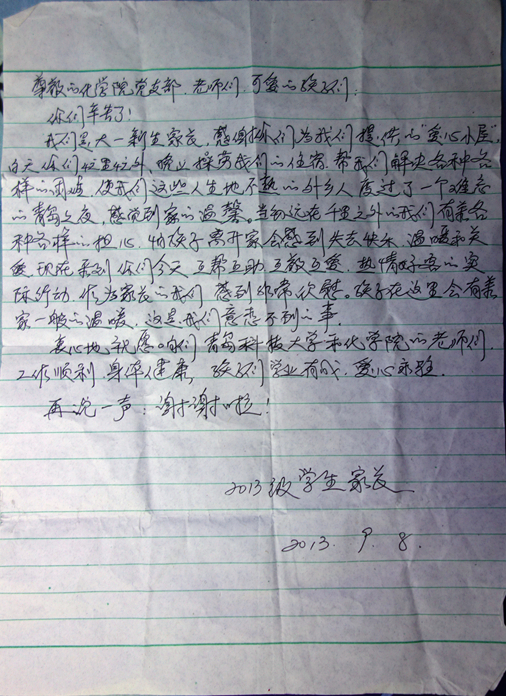 尊敬的化学院党支部、老师们、可爱的孩子们:
你们辛苦了!
我们是大一新生家长,感谢你们为我们提供的"爱心小屋",
白天你们忙里忙外,晚上操劳我们的住宿,帮我们解决各种各
样的困难,使我们这些人生地不熟的外乡人度过了一个难忘
的青岛之夜,感觉到家的温馨。当初远在千里之外的我们有着各
种各样的担心,怕孩子离开家会感到失去快乐、温暖和关
爱,现在来到你们今天互帮互助、互敬互爱,热情好客的实
际行动,作为家长的我们感到非常欣慰。孩子在这里会有着
家一般的温暖,这是我们意想不到的事。
衷心地祝愿咱们青岛科技大学和化学院的老师们,
工作顺利,身体健康,孩子们学业有成,爱心永驻。
再说一声:谢谢啦!
2013级学生家长
2013.9.8.